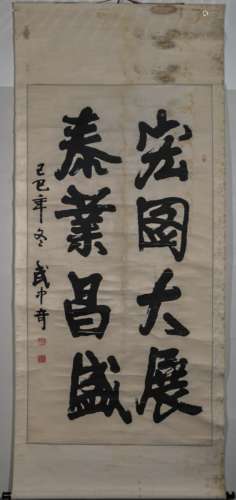 宏图大展
泰业昌盛
己巳年冬 武中奇